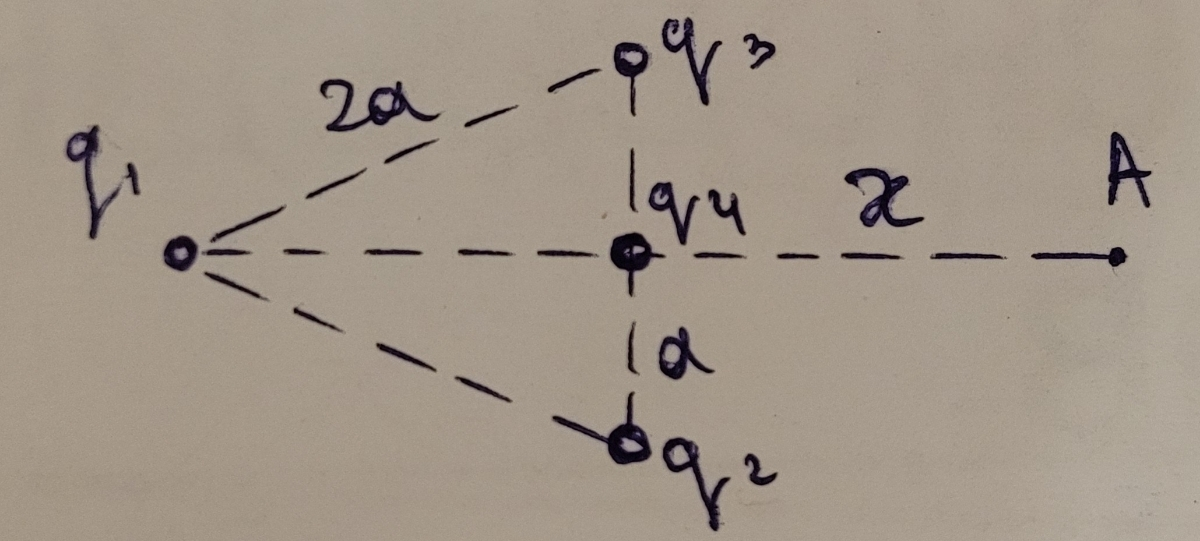 q3
2a
q1
q4
x
A
a
q2